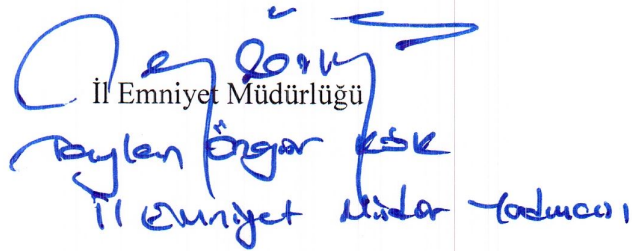 İl Emniyet Müdürlüğü
Taylan Özgür KÖK
İl Emniyet Müdür Yardımcısı